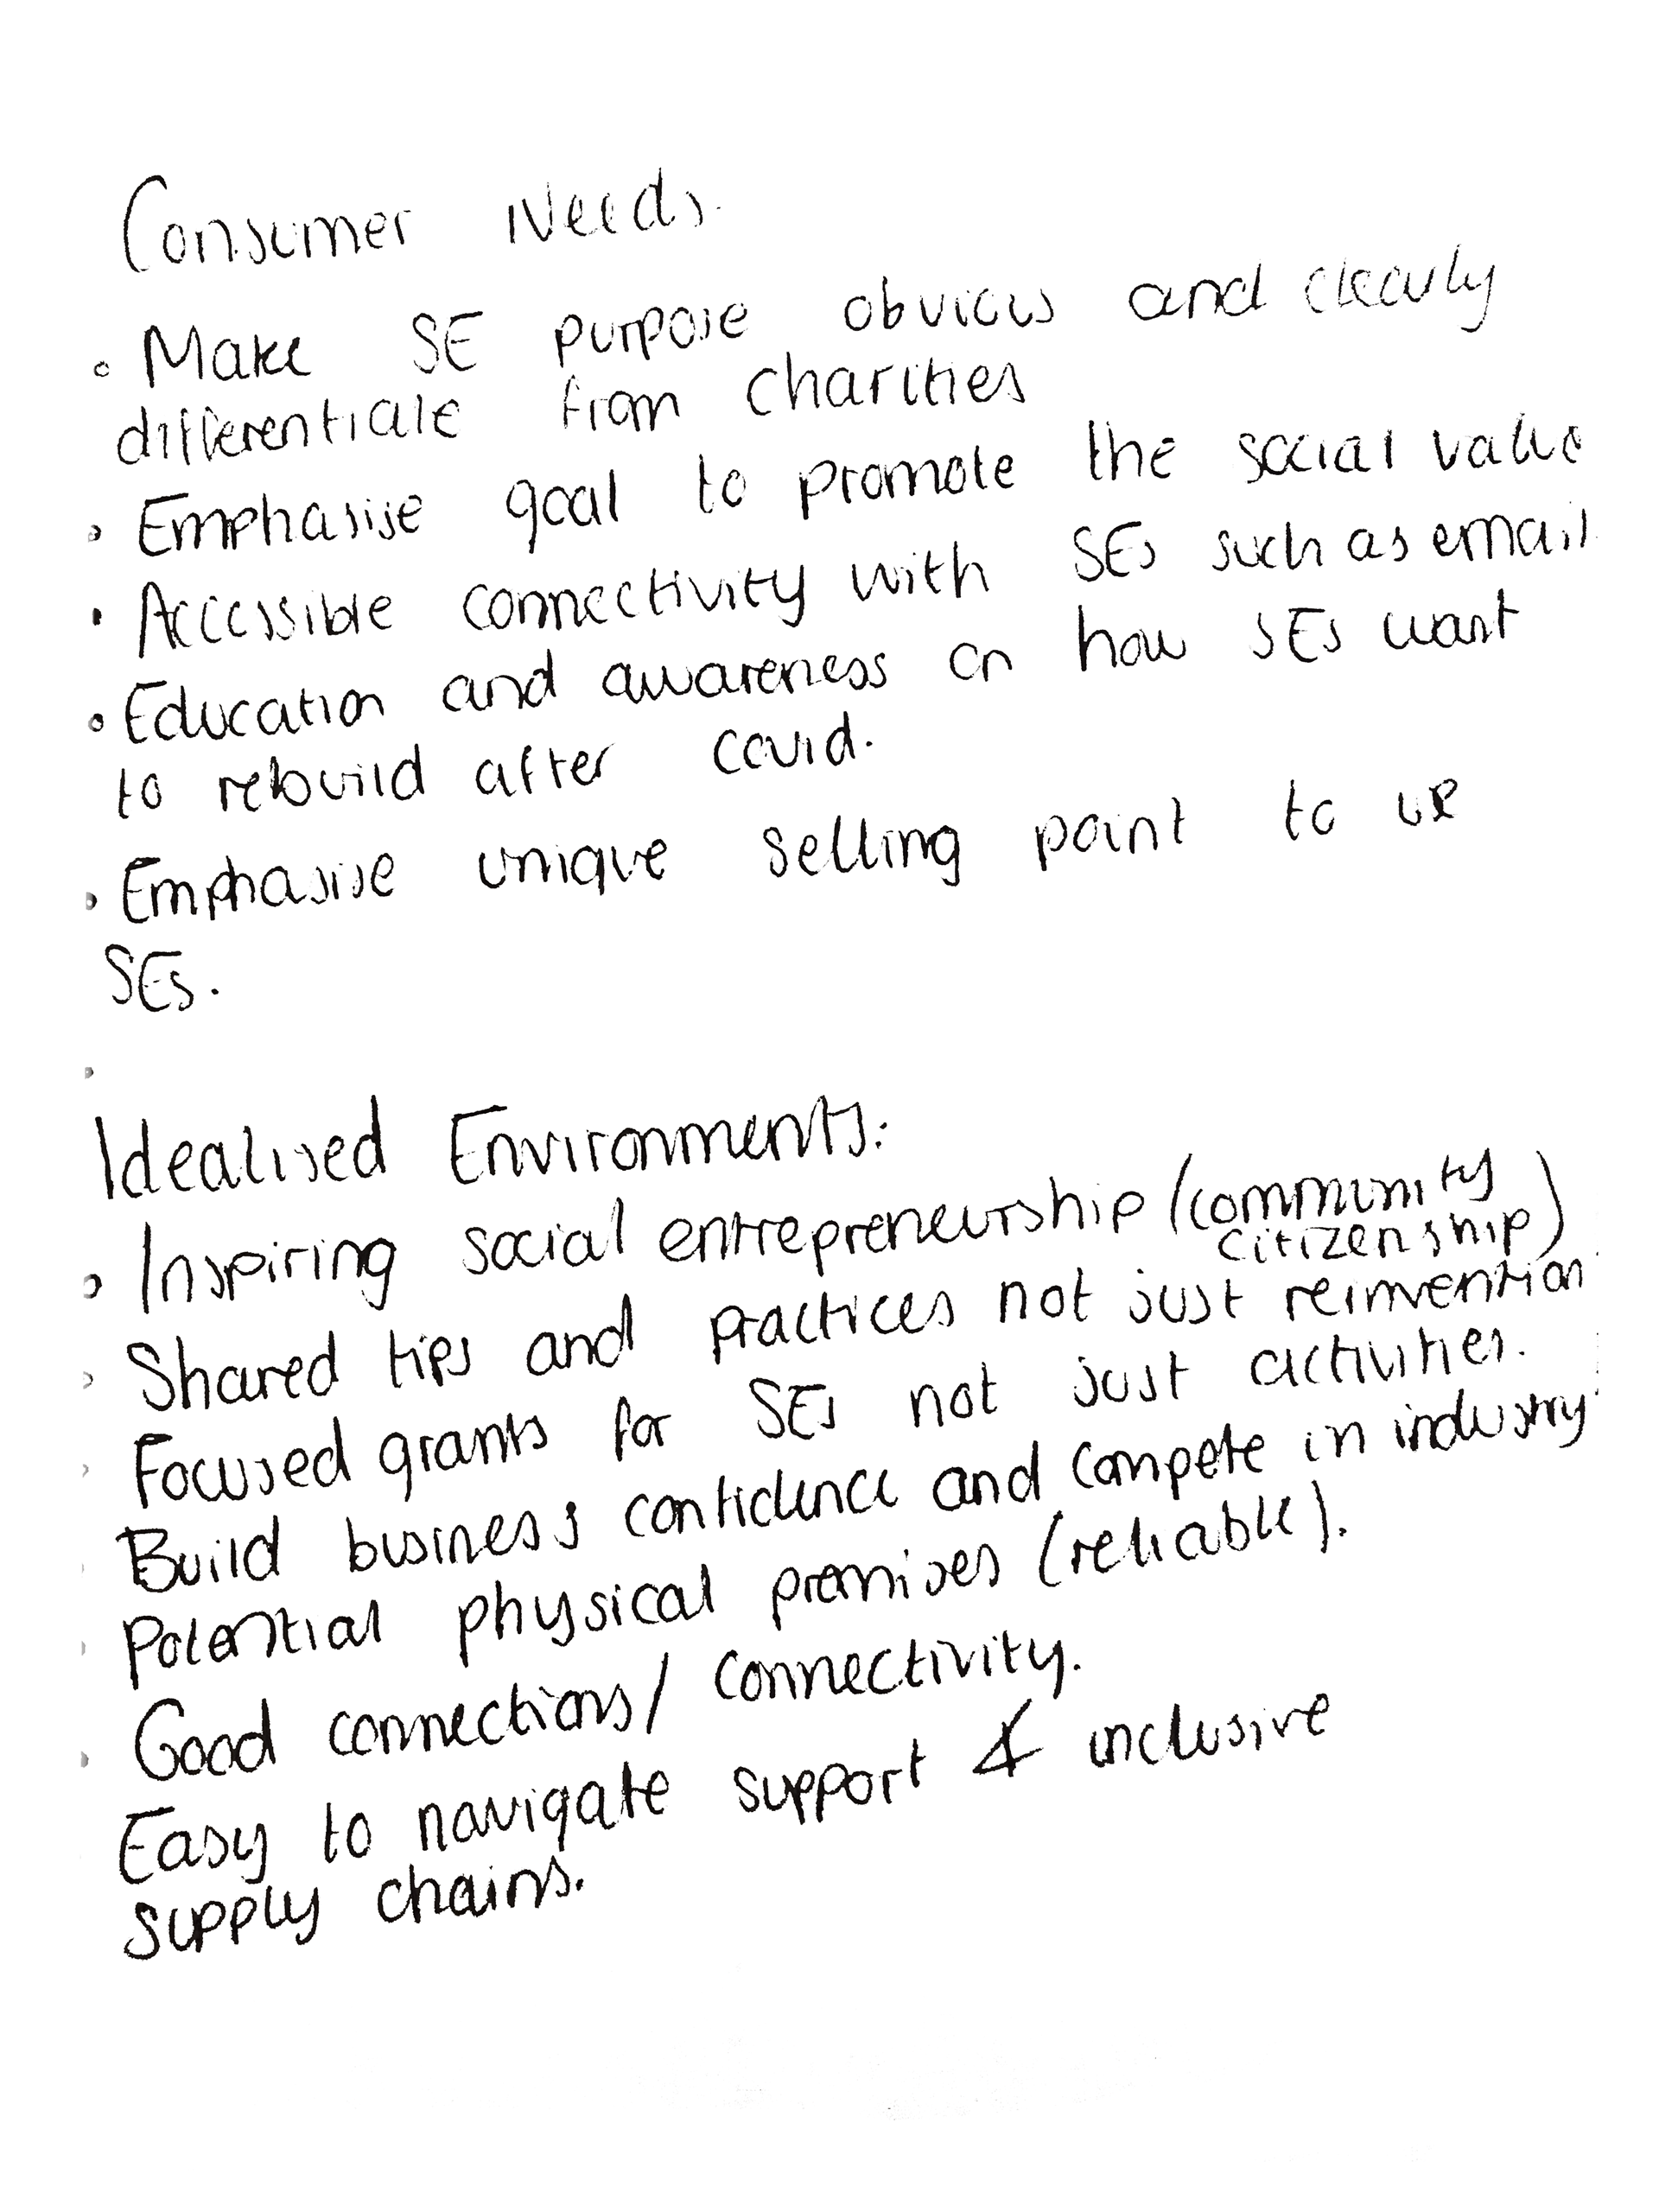 Consumer Needs.
• Make SE purpose obvious and clearly
differentiate from charities
• Emphasise goal to promote the social value
• Accessible connectivity with SEs such as email
• Education and awareness on how SEs want
to rebuild after covid.
• Emphasise unique selling point to
SEs.
Idealised Environments:
• Inspiring social entrepreneurship (community
citizenship)
• Shared tips and practices not just reinvention
• Focused grants for SEs not just activities.
Build business confidence and compete in industry
• Potential physical premises (reliable).
• Good connections/ connectivity.
Easy to navigate support & inclusive
supply chains.